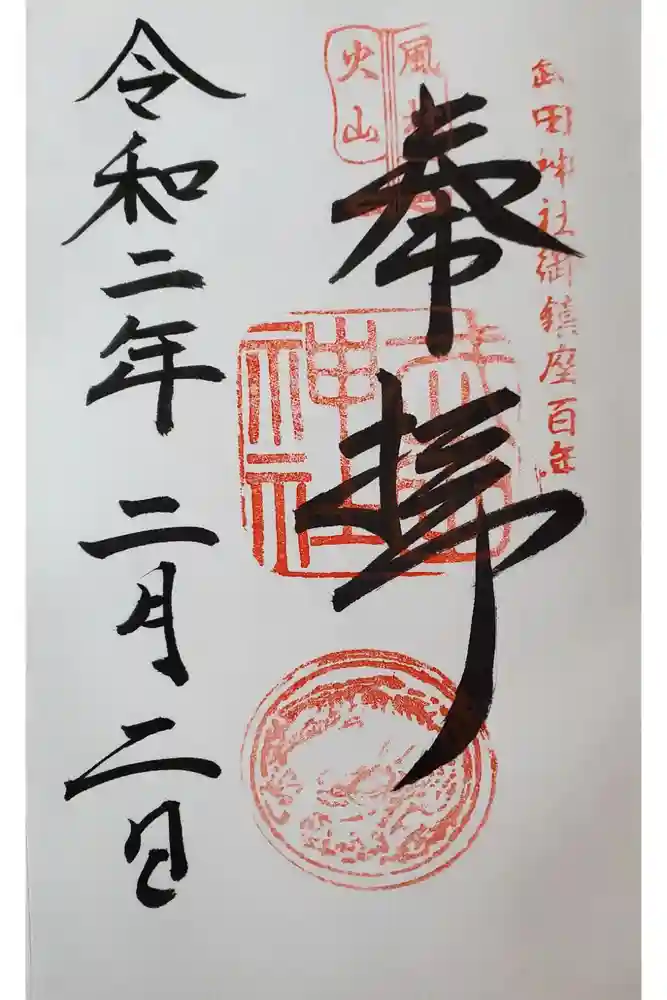 武田神社御鎮座百年
風林
火山
奉拝
武田神社
令和二年 二月二日